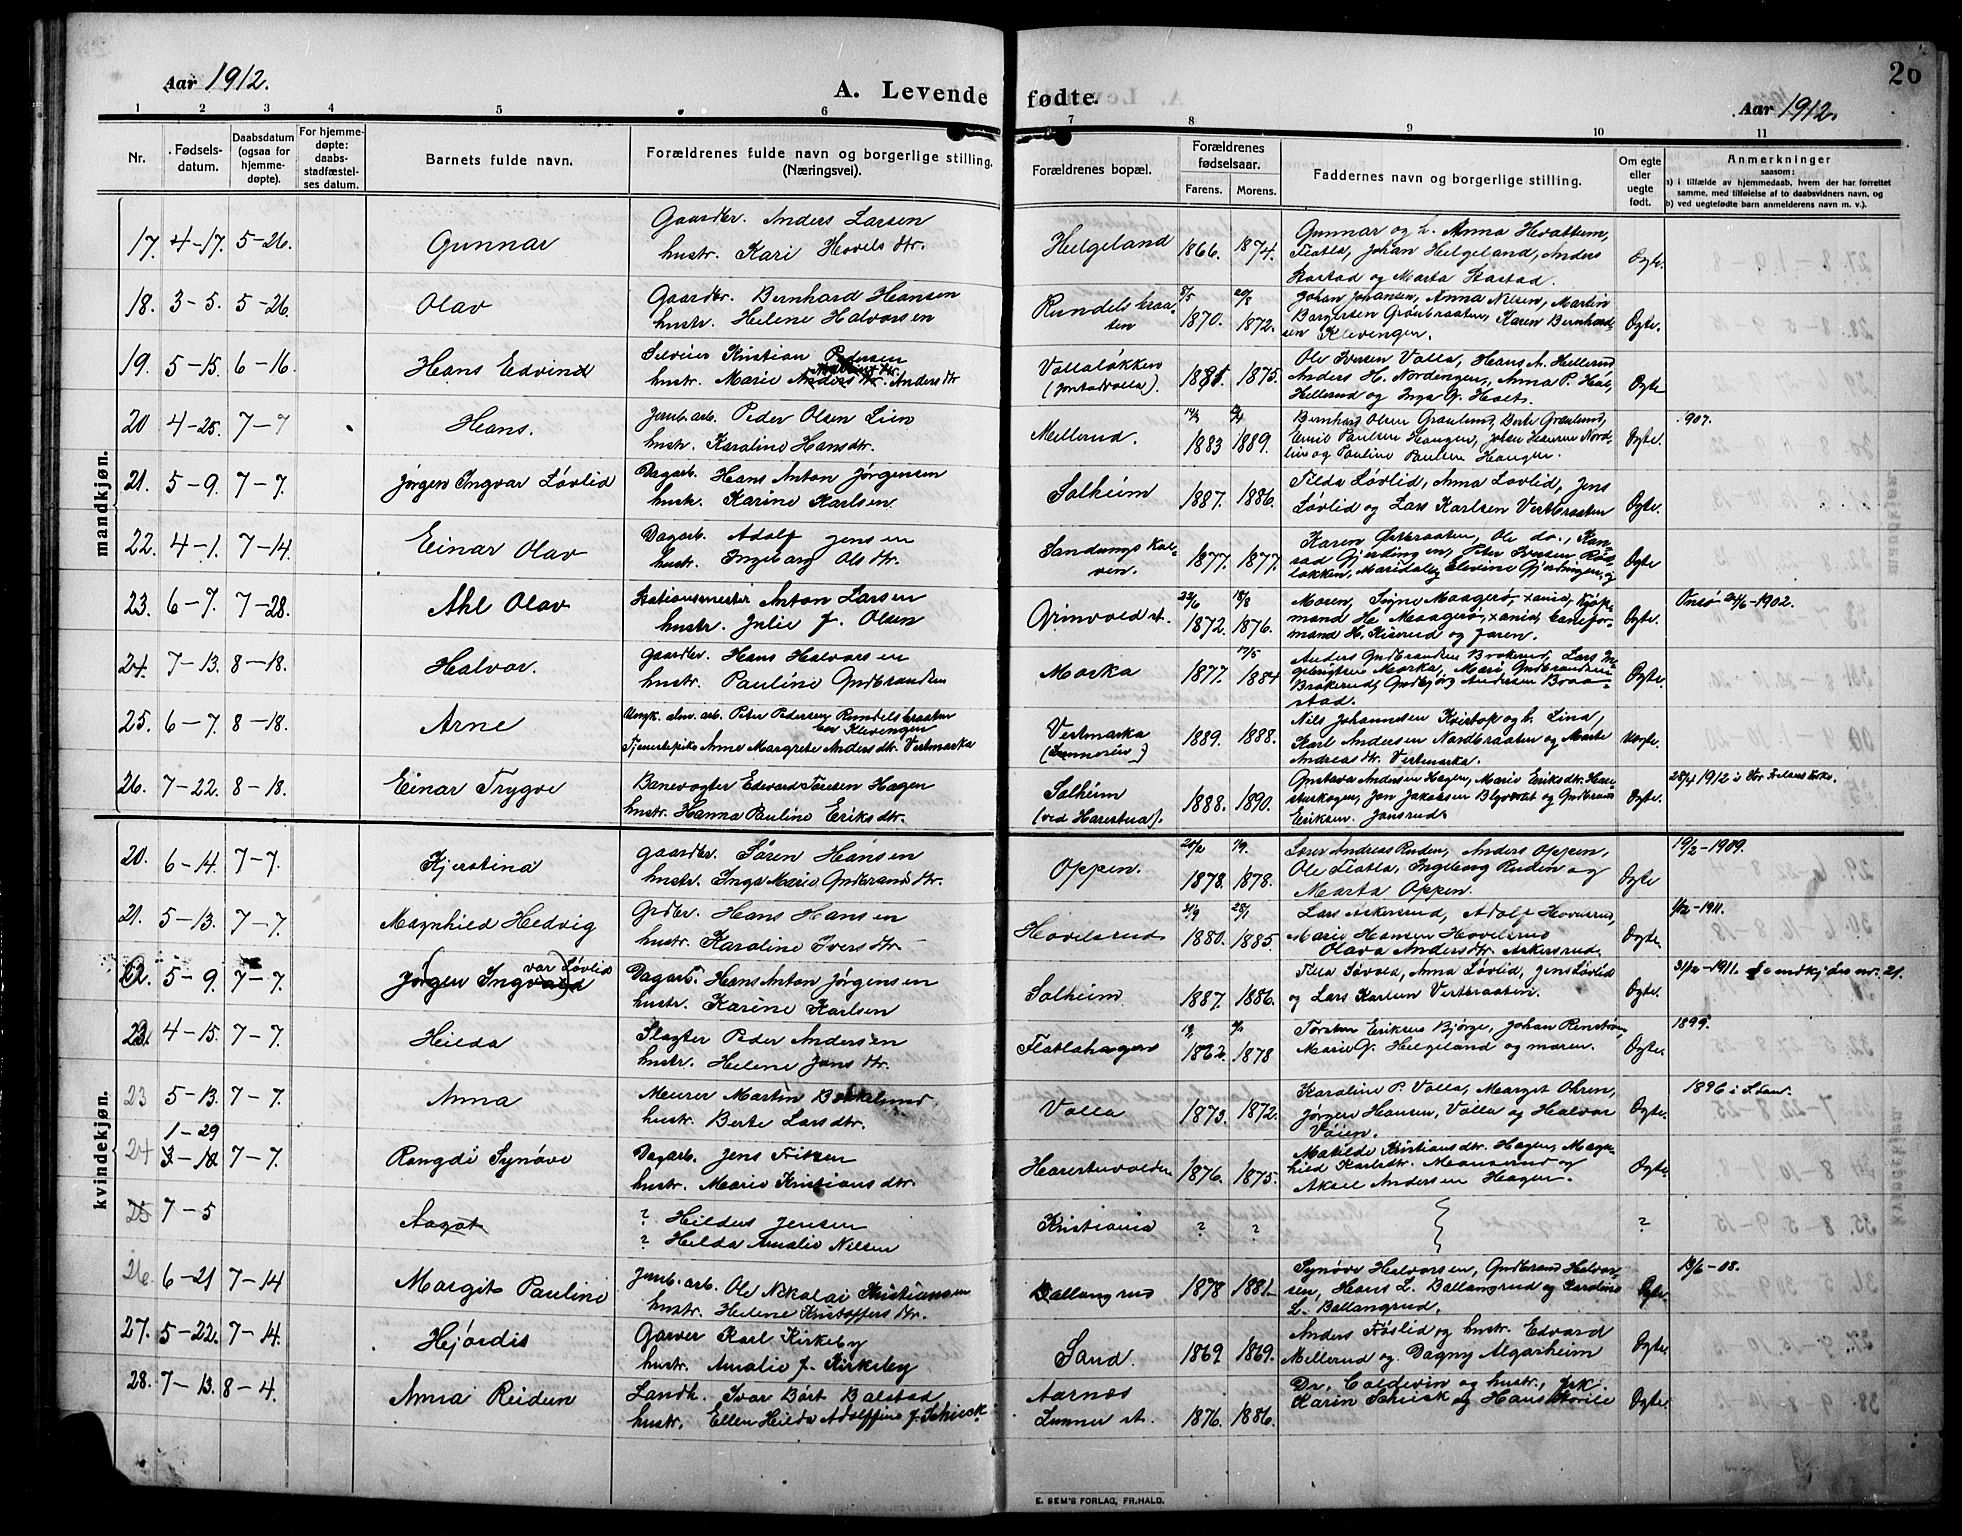 Aar 1912.
A. Levende fødte.
Aar 1912.
20
1 2 3 4 5 6 7 8 9 10 11
Nr.
Fødsels-
datum.
Daabsdatum
(ogsaa for
hjemme-
døpte).
For hjemme-
døpte:
daabs-
stadfæstel-
ses datum.
Barnets fulde navn.
Forældrenes fulde navn og borgerlige stilling.
(Næringsvei).
Forældrenes bopæl.
Forældrenes
fødselsaar.
Farens. Morens.
Faddernes navn og borgerlige stilling.
Om egte
eller
uegte
født.
Anmerkninger
saasom:
a) i tilfælde av hjemmedaab, hvem der har forrettet
samme, med tilføielse af to daabsvidners navn, og
b) ved uegtefødte barn anmelderens navn m. v.).
mandkjøn.
17. 4-17. 5-26. Gunnar
Gaardbr. Anders Larsen
hustr. Kari Hovelsdtr.
Helgeland 1866. 1874.
Gunnar og h. Anna Hvattum,
Flatla, Johan Helgeland, Anders
Stastad og Marta Stastad.
Egte.
18. 3-5. 5-26. Olav
Gaardbr. Bernhard Hansen
hustr. Helene Halvorsen
Rundelsbraa-
ten
1870. 1872.
Johan Johansen, Anna Nilsen, Martin
Borgersen Grønbraaten, Karen Bernhard-
sen Klevengen.
Egte.
19. 5-15. 6-16 Hans Edvind
Selveier Kristian Pedersen
hustr. Marie Andersdtr.
Vollaløkken
1875.
Ole Iversen Volla, Hans A. Hellerud,
Anders H. Nordengen, Anna P. Hol,
Hellerud og Inga G. Holt.
Egte
20 4-25. 7-7 Hans.
Jernb. arb. Peder Olsen Lien
hustr. Karoline Hansdtr.
Mellerud. 1883 1889.
Bernhard Olsen Grønlund, Berte Grønlund,
Emil Paulsen Haugen, Johan Hansen Nord-
lien og Pauline Paulsen Haugen.
Egte. 907.
21. 5-9. 7-7. Jørgen Ingvar Løvlid
Dagarb. Hans Anton Jørgensen
hustr. Karine Karlsen
Solheim 1887. 1886.
Tilda Løvlid, Anna Løvlid, Jens
Løvlid og Lars Karlsen Vestbraaten
Egte.
22. 4-1. 7-14. Einar Olav
Dagarb. Adolf Jensen
hustr. Ingeborg Olsdtr.
Sandungskal-
ven.
1877. 1877.
Karen Østbraaten, Ole do., Kon-
rad Gjerdingen, Peter Iversen
løkken, Maridalen, Elevine Gjerdingen
Egte
23. 6-7. 7-28. Ahl Olav
Stationsmester Anton Larsen
hustr. Julie f. Olsen
Grinvold st. 22/6 1872. 18/8 1876.
Moren, Signe Maagerø, Kjøp-
mand H. Maagerø, banefor-
mand H. Kiserud og faren.
Egte. Onsø 24/6-1902.
24. 7-13. 8-18. Halvor.
Gaardbr. Hans Halvorsen
hustr. Pauline Gudbrandsen
Morka 1877. 17/5 1884
Anders Gudbrandsen Brokerud, Lars In-
gebrigtsen Morka, Mari Gudbrandsen
Brokerud, Gudbjør Andersen Braa-
stad.
Egte.
25. 6-7. 8-18. Arne
Ungk. alm. arb. Peter Pedersen Rundelsbraaten
Klevengen
Tjenestepike Anne Margrete Andersdtr. Vestmarka
Vestmarka
1889. 1888.
Nils Johannesen Kvistop og h. Lina,
Karl Andersen Nordbraaten og Marte
Andreasdtr. Vestmarka.
Uegte.
26. 7-22. 8-18. Einar Trygve
Banevogter Edevard Hagen
hustr. Hanna Pauline Eriksdtr.
Solheim
(ved Harestua).
1888. 1890.
Gustava Andersen Hagen, Marie Eriksdtr. Hare-
stuskogen, Jon Jakobsen og Gudbrand
Eriksen Jonsrud.
Egte. 28/4 1912 i Vor Frelsers kirke.
kvindekjøn.
20. 6-14. 7-7. Kjerstina
Gaardbr. Søren Hansen
hustr. Inga Marie Gudbrandsdtr.
Oppen. 1878. 1878.
Andreas Ruden, Anders Oppen,
Ole Flatla, Ingeborg Ruden og
Marta Oppen.
Egte 19/2-1909.
21. 5-13. 7-7. Magnhild Hedvig
Grdbr. Hans Hansen
hustr. Karoline Iversdtr.
Hovelsrud 1880. 1885.
Lars Askerud, Adolf Hovelsrud,
Marie Hansen Hovelsrud
Olava Andersdtr. Askersrud.
Egte. 1/12-1911.
22. 5-9. 7-7. (Jørgen Ingvar Løvlid)
Dagarb. Hans Anton Jørgensen
hustr. Karine Karlsen
Solheim. 1887. 1886.
Tilla Løvold, Anna Løvlid, Jens Løvlid
og Lars Karlsen Vestbraaten.
Egte. 31/12-1911. Se mandkjøn nr. 21.
23. 4-15. 7-7. Hilda
Slagter Peder Andersen
hustr. Helene Jonsdtr.
Flatlahagen 1862. 1878
Torsten Eriksen Bjørge, Johan Renstrøm,
Marie G. Helgeland og moren.
Egte. 1899.
23 5-13. 7-7. Anna
Meurer Martin
hustr. Berte Larsdtr.
Volla 1873. 1872.
Karoline P. Volla, Marget Ohren,
Jørgen Hansen, Volla og Halvor
Vøien.
Egte. 1896 i S. Land.
24 1-29 3-12 7-7. Rangdi Synøve
Dagarb. Jens Fritzen
hustr. Marie Kristiansdtr.
Harestuvolden 1876. 1875.
Matilde Kristiansdtr. Hagen, Magn-
hild Karlsdtr. Monserud og
Aksel Andersen Hagen.
Egte.
25 7-5 Aagot
? Hilders Jensen
? Hilda Amalie Nilsen
Kristiania ? ? ?
26. 6-21 7-14 Margit Pauline
Jernb. arb. Ole Nikolai Kristiansen
hustr. Helene Kristoffersdtr.
Ballangrud 1878 1881
Synøve Halvorsen, Gudbrand Halvor-
sen, Hans L. Ballangrud og Karoline
L. Ballangrud.
Egte. 13/6-08.
27. 5-22. 7-14. Hjørdis
Garver Karl Kirkeby
hustr. Amalie f. Kirkeby
Sand. 1869 1869.
Anders Frøslid og hustr. Edvard
Mellerud og Dagny Algarheim
Egte.
28. 7-13. 8-4. Anna Reidun
Landh. Ivar Bört Balstad
hustr. Ellen Hilda Adolffine f. Schieck
Aarnes
Lunner st.
1876. 1886.
Dr. Coldevin og hustr., frk
Karin Schieck og Hans
Egte.
E. SEM'S FORLAG, FR.HALD.